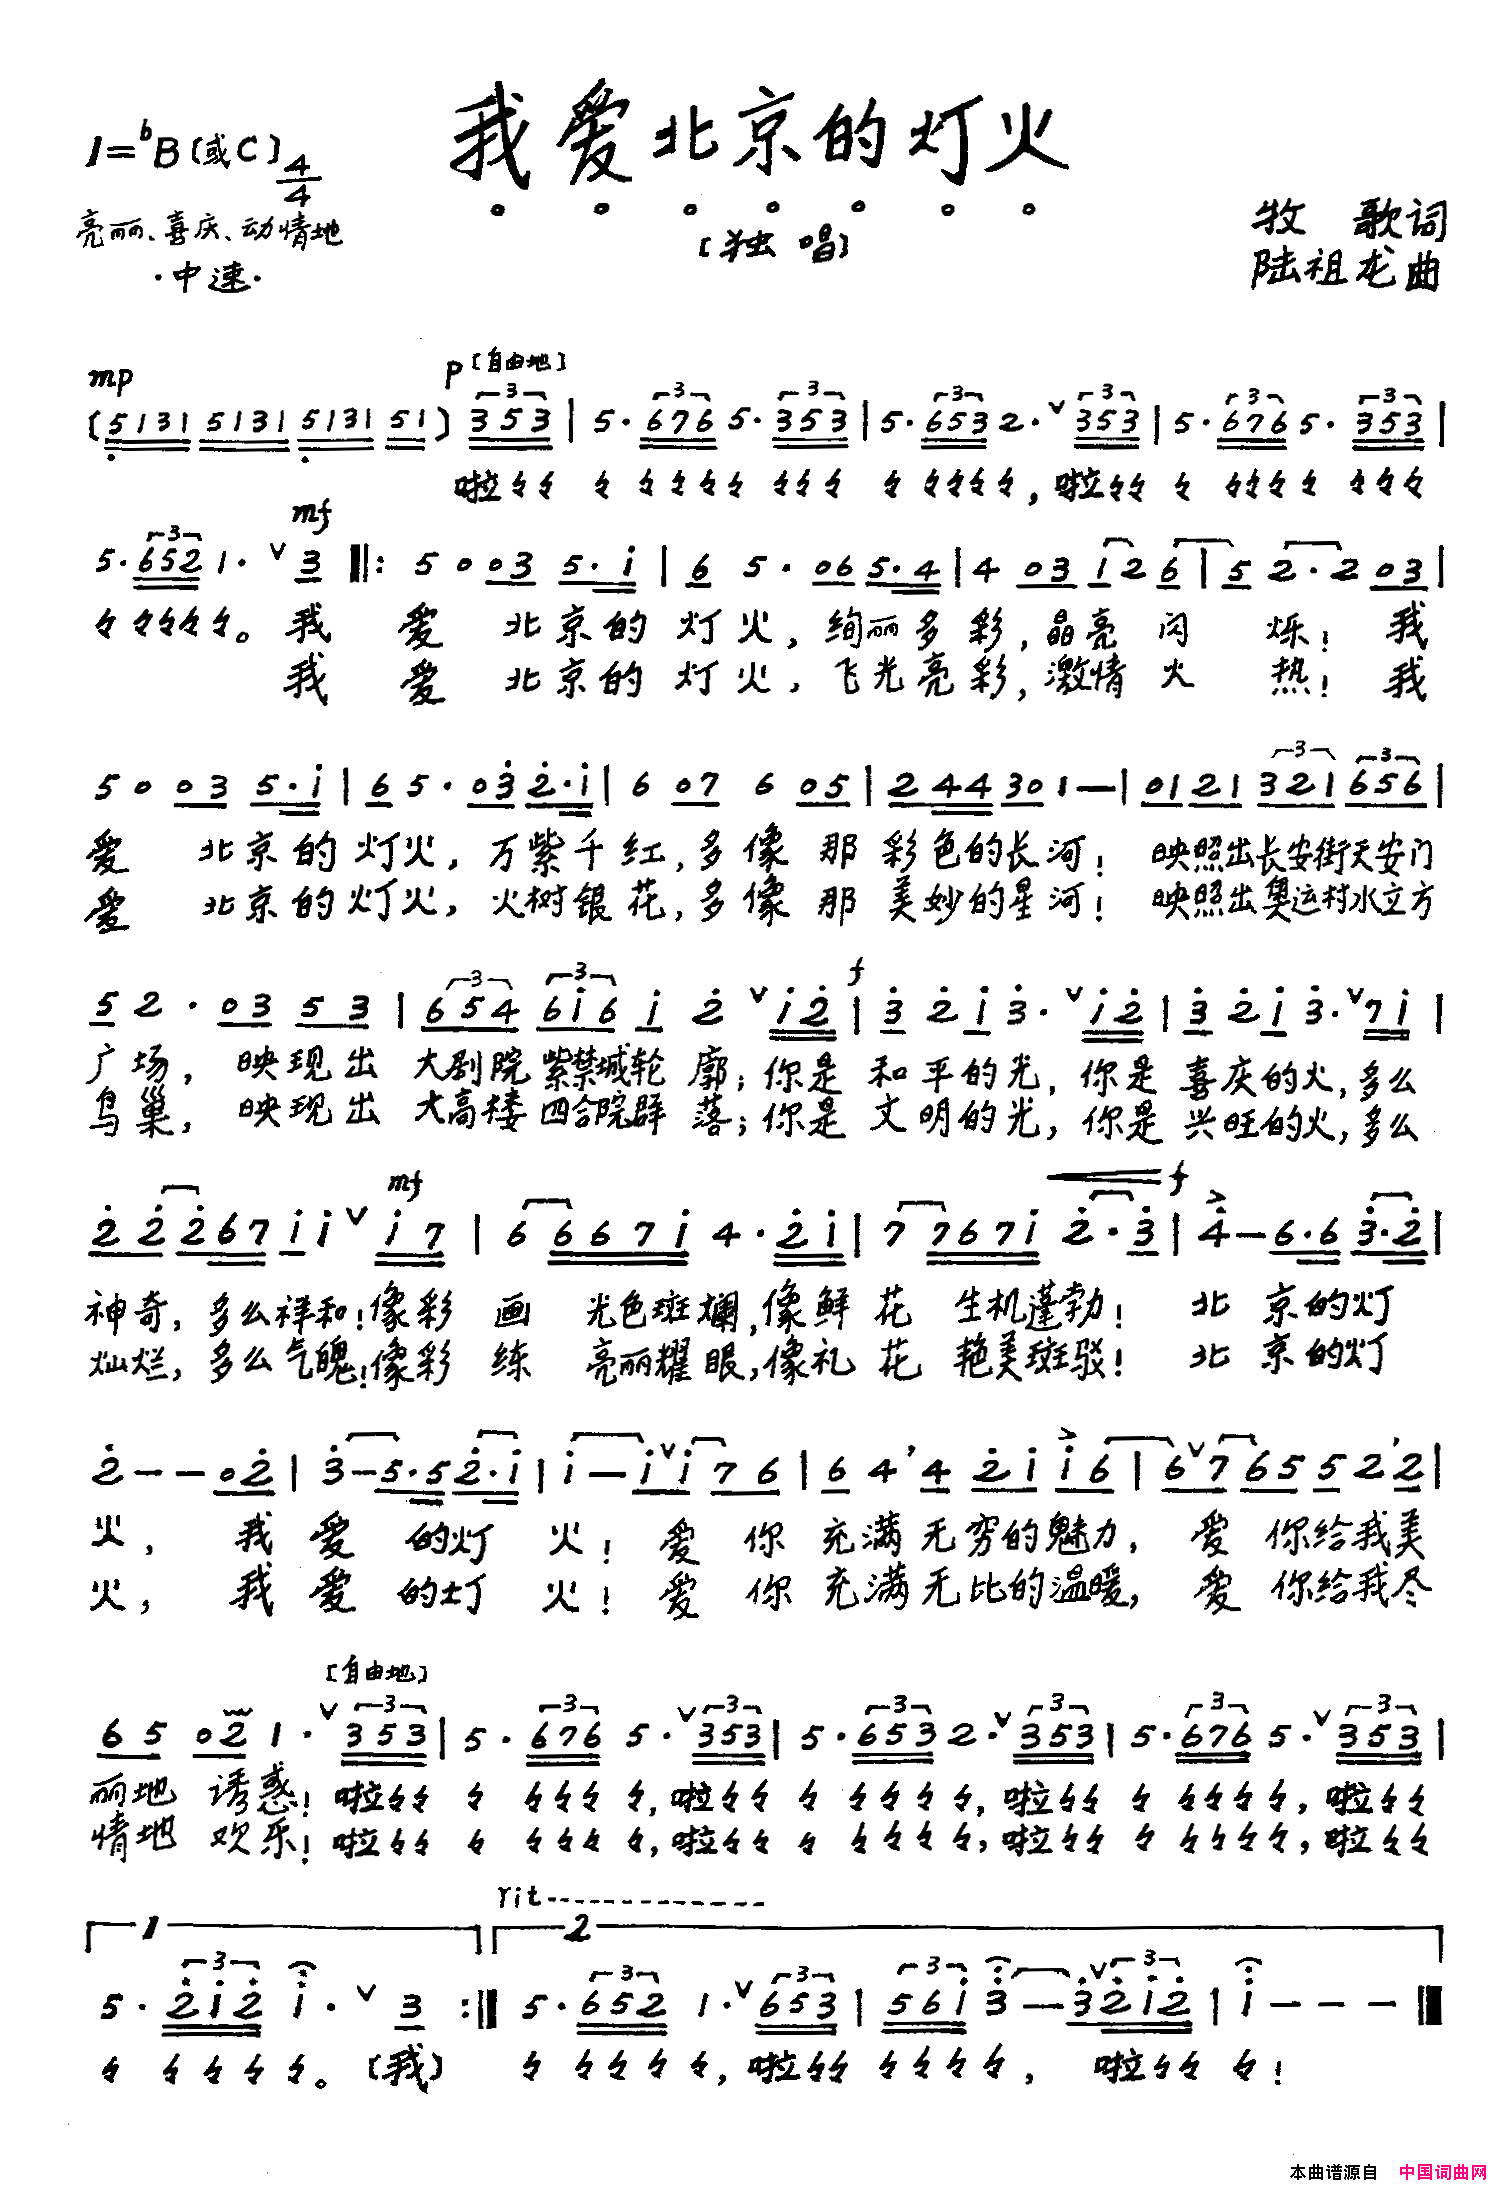 我爱北京的灯火
1=♭B(或C) 4/4
亮丽、喜庆、动情地
·中速·
[独 唱]
牧 歌词
陆祖龙曲
mp p [自由地]
(5131 5131 5131 51) 353 | 5· 676 5· 353 | 5· 653 2· ∨ 353 | 5· 676 5· 353 |
啦々々 々 々々々々 々々々 々 々々々々, 啦々々 々 々々々々 々々々
mf
5· 652 1· ∨ 3 ‖: 5 0 03 5· i | 6 5· 06 5·4 | 4 03 12 6 | 5 2· 2 03 |
々 々々々々。我 爱 北京的 灯 火, 绚丽多彩, 晶亮闪 烁! 我
我 爱 北京的 灯 火, 飞光亮彩, 激情火 热! 我
5 0 03 5·i | 6 5· 03 2·i | 6 07 6 05 | 2 44 30 1 — | 01 21 321 656 |
爱 北京的灯火, 万紫千红, 多像 那 彩色的长河! 映照出长安街天安门
爱 北京的灯火, 火树银花, 多像 那 美妙的星河! 映照出奥运村水立方
f
5 2 · 03 53 | 654 6i6 i 2 ∨ i2 | 3 2 i 3· ∨ i2 | 3 2 i 3· ∨ 7i |
广场, 映现出 大剧院紫禁城轮 廓; 你是 和平的光, 你是 喜庆的火, 多么
鸟巢, 映现出 大高楼四合院群 落; 你是 文明的光, 你是 兴旺的火, 多么
mf f
2 2 2 67 i i ∨ i 7 | 6 6 6 7 i 4· 2 i | 7 7 6 7 i 2· 3 | 4 — 6·6 3·2 |
神奇, 多么祥和! 像彩 画 光色斑斓, 像鲜 花 生机蓬勃! 北 京的灯
灿烂, 多么气魄! 像彩 练 亮丽耀眼, 像礼 花 艳美斑驳! 北 京的灯
2 — — 02 | 3 — 5·5 2·i | i — i ∨ i 7 6 | 6 4 ’ 4 2 i i 6 | 6 ∨ 7 6 5 5 2 ’ 2 |
火, 我 爱 的灯 火! 爱 你 充满无穷的魅力, 爱 你给我美
火, 我 爱 的灯 火! 爱 你 充满无比的温暖, 爱 你给我尽
[自由地]
6 5 02 1· ∨ 353 | 5· 676 5· ∨ 353 | 5· 653 2· ∨ 353 | 5· 676 5· ∨ 353 |
丽地 诱惑! 啦々々 々 々々々 々, 啦々々 々 々々々 々, 啦々々 々 々々々 々, 啦々々
情地 欢乐! 啦々々 々 々々々 々, 啦々々 々 々々々 々, 啦々々 々 々々々 々, 啦々々
rit
1 2
5· 2i2 i· ∨ 3 :‖ 5· 652 1· ∨ 653 | 56i 3 — 3 ∨ 2i2 | i — — — ‖
々 々々々 々。(我) 々 々々々 々, 啦々々 々々々 々, 啦々々 々!
本曲谱源自 中国词曲网